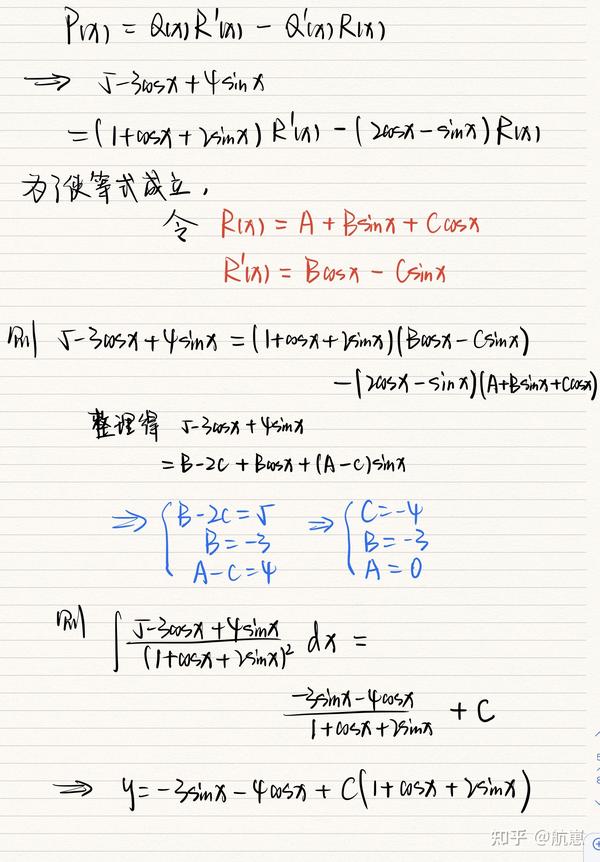 P(x) = Q(x)R'(x) - Q'(x)R(x)
⇒ 5-3cosx+4sinx
=(1+cosx+2sinx)R'(x)-(2cosx-sinx)R(x)
为了使等式成立,
令 R(x) = A+Bsinx+Ccosx
R'(x) = Bcosx-Csinx
则 5-3cosx+4sinx = (1+cosx+2sinx)(Bcosx-Csinx)
-(2cosx-sinx)(A+Bsinx+Ccosx)
整理得 5-3cosx+4sinx
= B-2C+Bcosx+(A-C)sinx
⇒ { B-2C=5 ⇒ { C=-4
B=-3 B=-3
A-C=4 A=0
则 ∫ (5-3cosx+4sinx)/(1+cosx+2sinx)² dx =
(-3sinx-4cosx)/(1+cosx+2sinx) + C
⇒ y=-3sinx-4cosx+C(1+cosx+2sinx)
知乎 @航崽